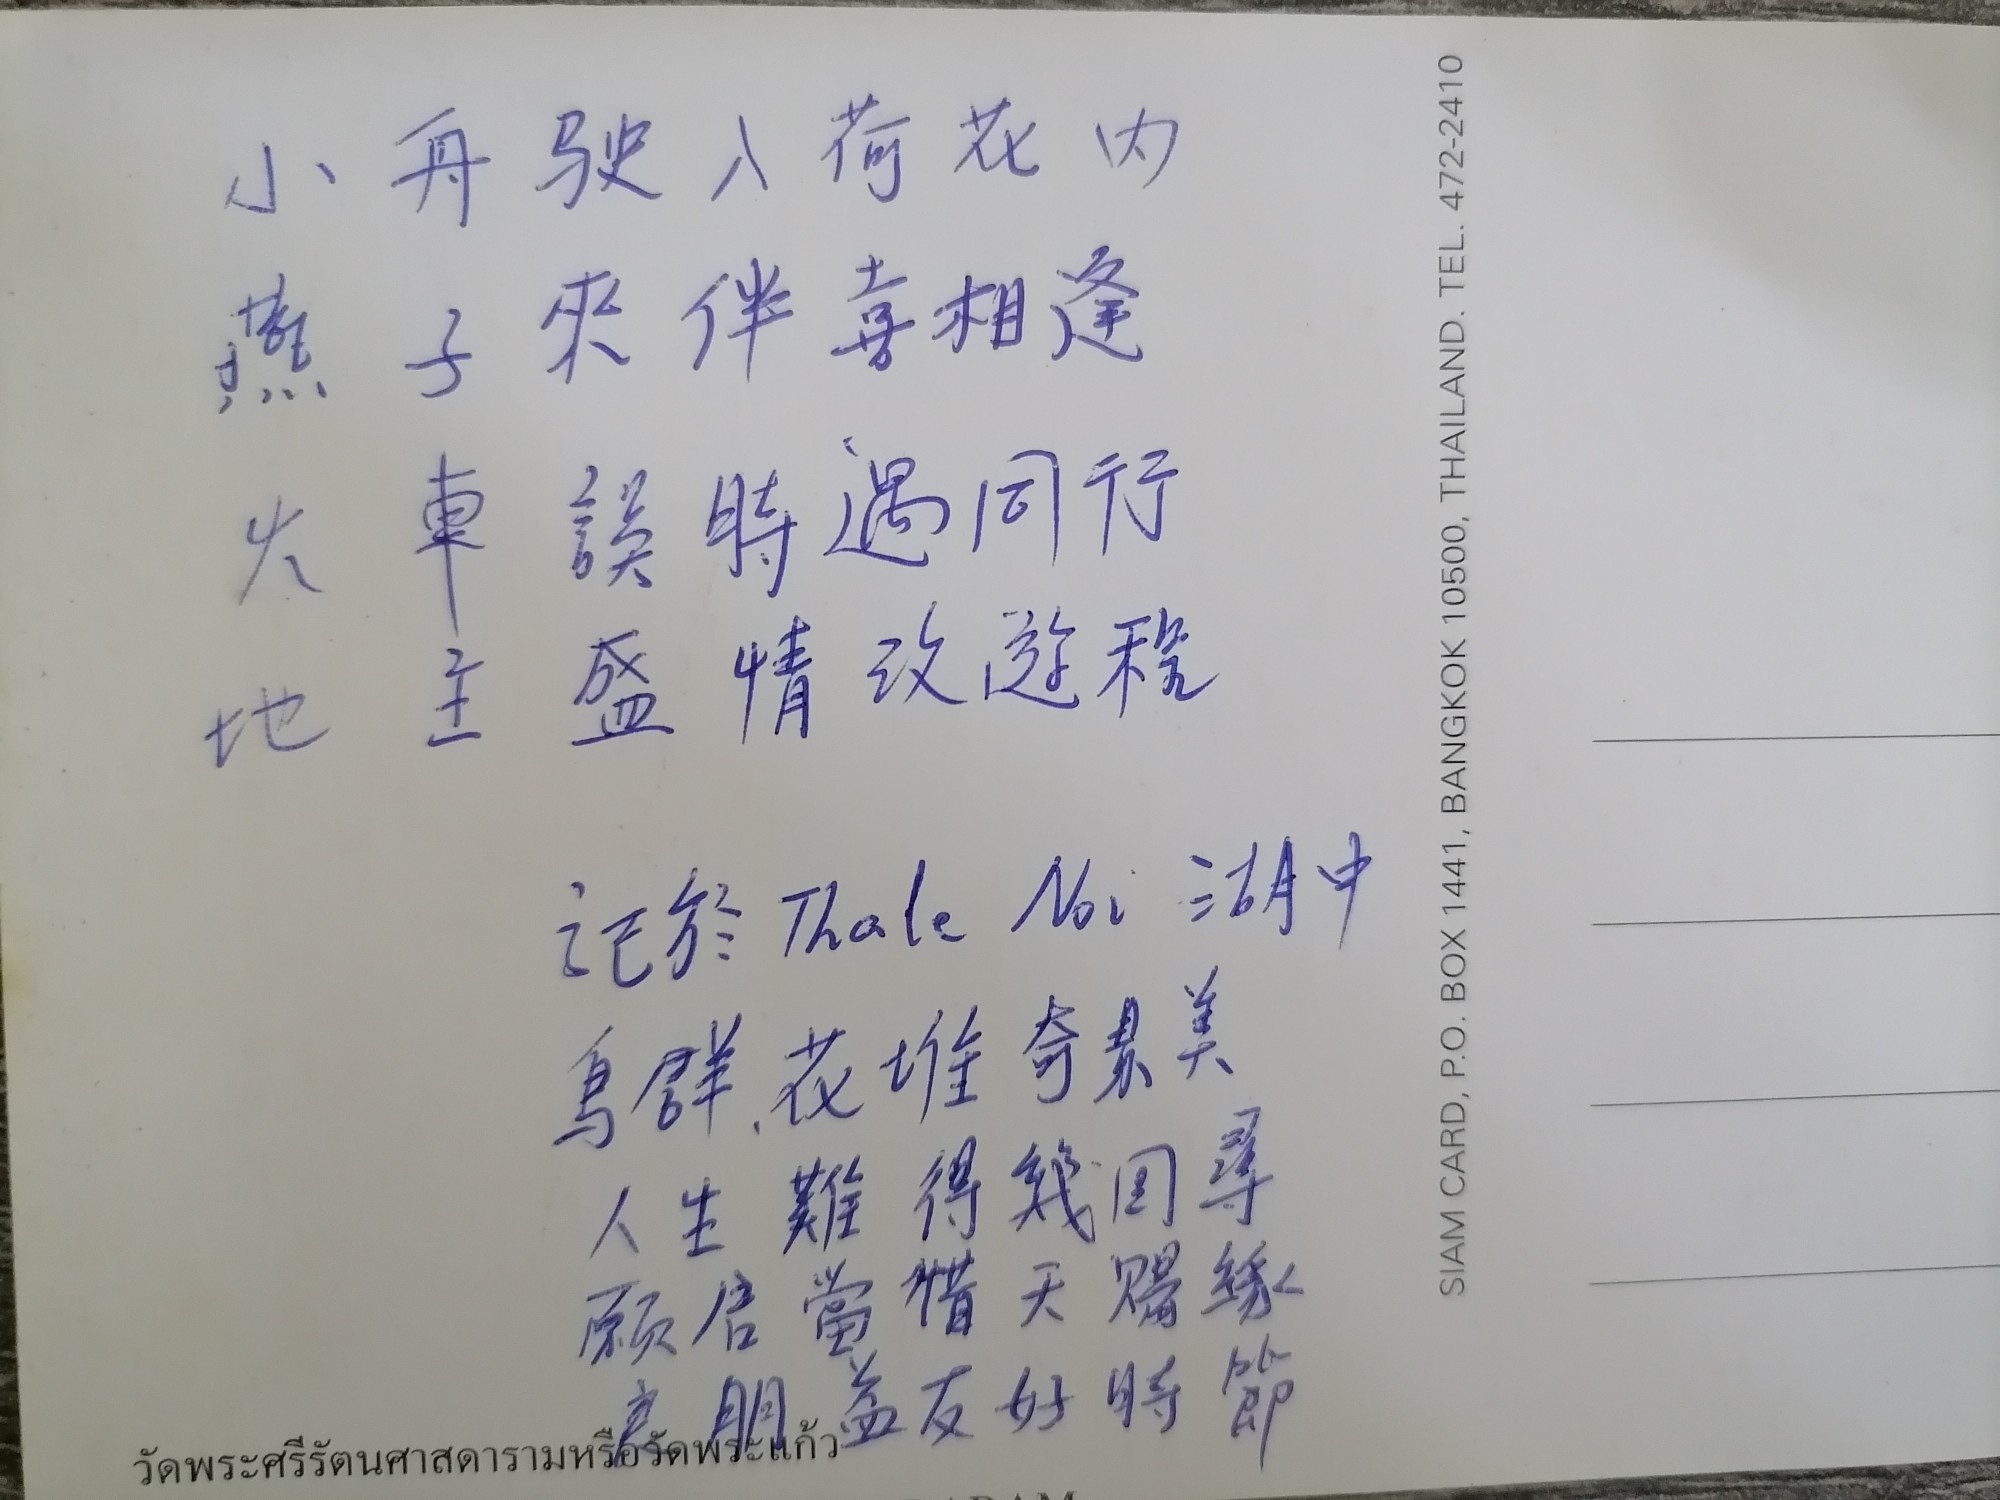 小舟驶入荷花内
燕子來伴喜相逢
火車誤時遇同行
地主盛情改遊程
記於 Thale Noi 湖中
鳥群花堆奇景美
人生難得幾回尋
願君當惜天賜緣
良朋益友好時節
วัดพระศรีรัตนศาสดารามหรือวัดพระแก้ว
SIAM CARD, P.O. BOX 1441, BANGKOK 10500, THAILAND. TEL. 472-2410